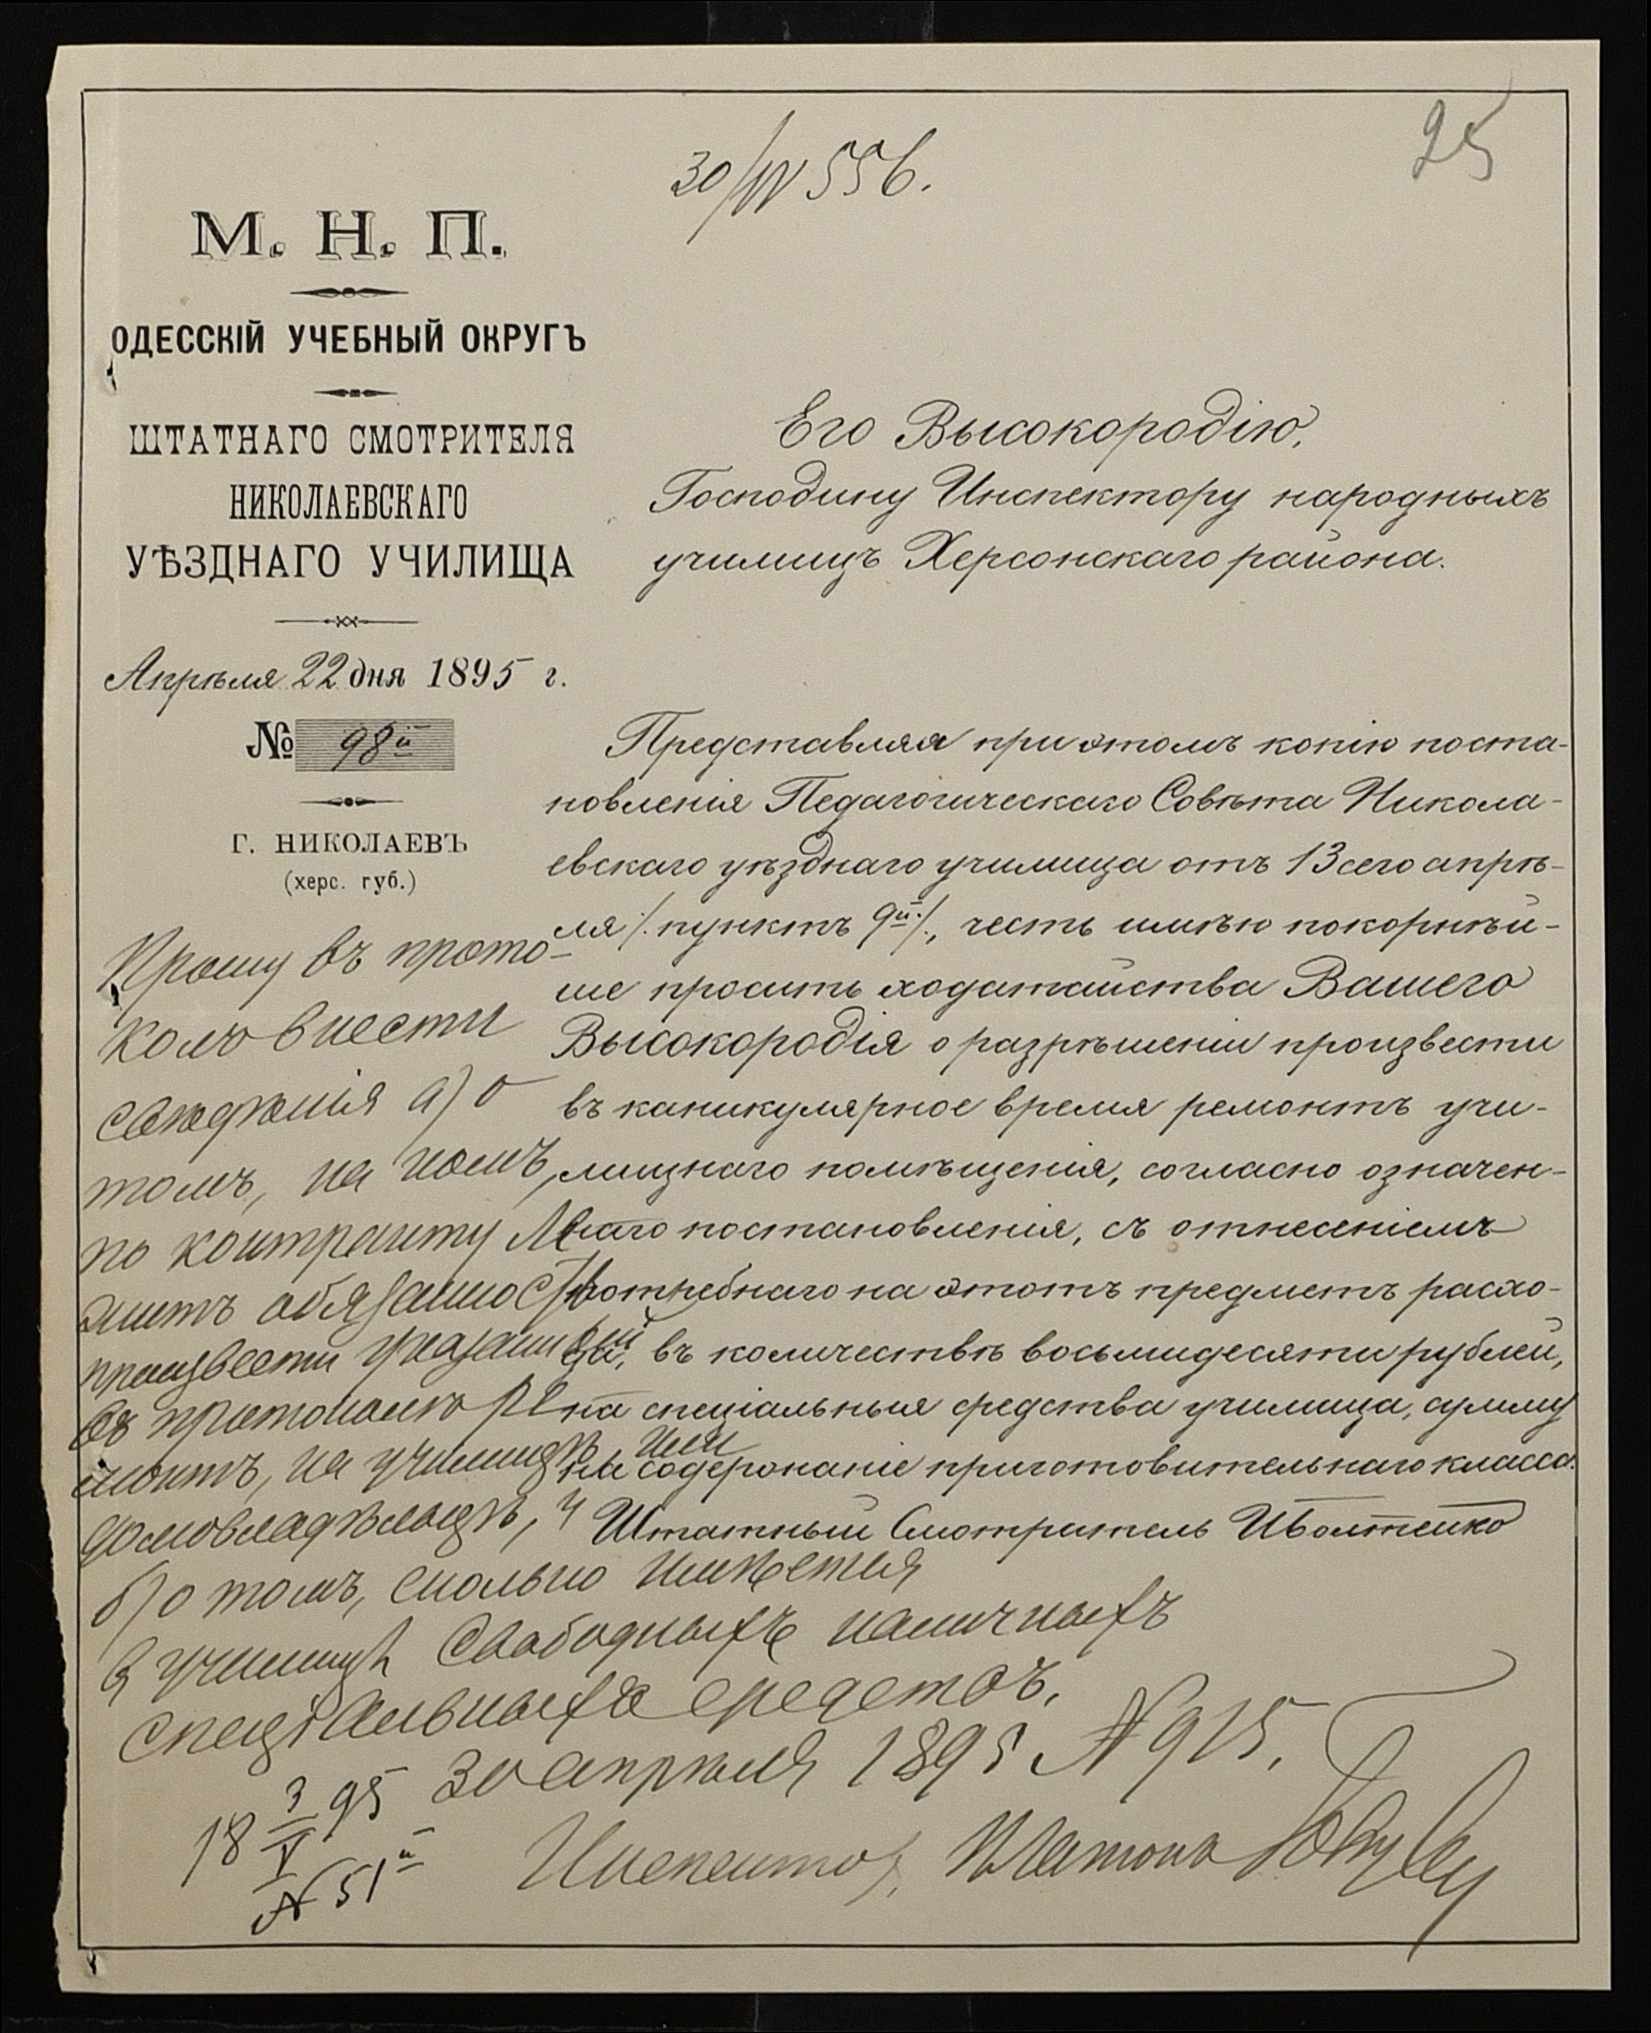 25
30/IV 556.
М. Н. П.
ОДЕССКІЙ УЧЕБНЫЙ ОКРУГЪ
ШТАТНАГО СМОТРИТЕЛЯ
НИКОЛАЕВСКАГО
УѢЗДНАГО УЧИЛИЩА
Апрѣля 22 дня 1895 г.
№ 98й
Г. НИКОЛАЕВЪ
(херс. губ.)
Его Высокородію,
Господину Инспектору народныхъ
училищъ Херсонскаго района.
Представляя при этомъ копію поста-
новленія Педагогическаго Совѣта Никола-
евскаго уѣзднаго училища отъ 13 сего апрѣ-
ля /. пунктъ 9й ./, честь имѣю покорнѣй-
ше просить ходатайства Вашего
Высокородія о разрѣшеніи произвести
въ каникулярное время ремонтъ учи-
лищнаго помѣщенія, согласно означен-
наго постановленія, съ отнесеніемъ
потребнаго на этотъ предметъ расхо-
да, въ количествѣ восьмидесяти рублей,
на спеціальныя средства училища, сумму
на содержаніе приготовительнаго класса.
Штатный Смотритель
Прошу въ прото-
колъ внести
свѣдѣнія а) о
томъ, на комъ,
по контракту
житъ обязанность
произвести указанный
въ протоколѣ ре
монтъ, на училищѣ или
домовладѣльцѣ, и
б) о томъ, сколько имѣется
въ училищѣ свободныхъ наличныхъ
спеціальныхъ средствъ.
30 апрѣля 1895 № 915.
18 3/V 95
№ 51й
Инспекторъ